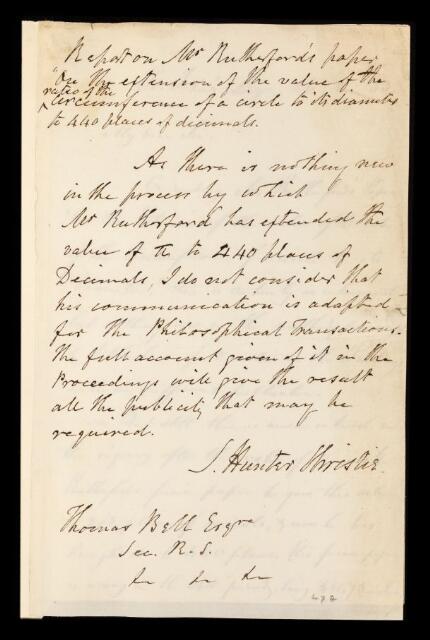 Report on Mr Rutherford's paper
"On the extension of the value of the
ratio of the
circumference of a circle to its diameter
to 440 places of decimals.
As there is nothing new
in the process by which
Mr Rutherford has extended the
value of π to 440 places of
Decimals, I do not consider that
his communication is adapted
for the Philosophical Transactions.
The full account given of it in the
Proceedings will give the result
all the publicity that may be
required.
S. Hunter Christie.
Thomas Bell Esqre
Sec. R. S.
&c &c &c